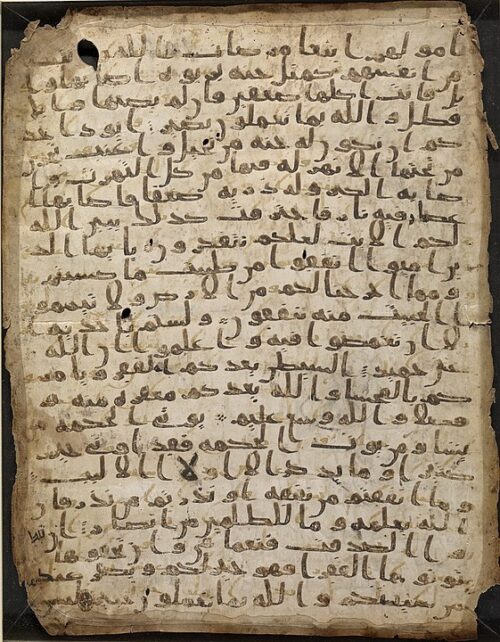 امولهم ابتغا مرضات الله وتثبيتا
من انفسهم كمثل جنه بربوه اصابها وا
بل فاتت اكلها ضعفين فان لم يصبها وابل
فطل والله بما تعملون بصير ايود احد
كم ان تكون له جنه من نخيل واعنب تجري
من تحتها الانهر له فيها من كل الثمرت وا
صابه الكبر وله ذريه ضعفا فاصابها ا
عصار فيه نار فاحترقت كذلك يبين الله
لكم الايت لعلكم تتفكرون يايها الذ
ين امنوا انفقوا من طيبت ما كسبتم
ومما اخرجنا لكم من الارض ولا تيممو
ا الخبيث منه تنفقون ولستم باخذيه
الا ان تغمضوا فيه واعلموا ان الله
غني حميد الشيطن يعدكم الفقر ويامر
كم بالفحشا والله يعدكم مغفره منه و
فضلا والله وسع عليم يوتي الحكمه من
يشا ومن يوت الحكمه فقد اوتي خيرا
كثيرا وما يذكر الا اولوا الالبب
وما انفقتم من نفقه او نذرتم من نذر فان
الله يعلمه وما للظلمين من انصار ان تبد
وا الصدقت فنعما هي وان تخفوها و
توتوها الفقرا فهو خير لكم ويكفر عنكم
من سيتكم والله بما تعملون خبير ليس